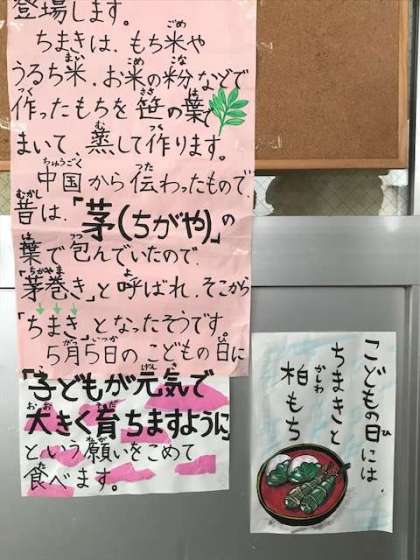 登場します。
ちまきは、もち米や
うるち米、お米の粉などで
作ったもちを笹の葉で
まいて、蒸して作ります。
中国から伝わったもので、
昔は、「茅(ちがや)」の
葉で包んでいたので、
「茅巻き」と呼ばれ、そこから
「ちまき」となったそうです。
5月5日のこどもの日に
「子どもが元気で
大きく育ちますように」
という願いをこめて
食べます。
こどもの日には、
ちまきと
柏もち